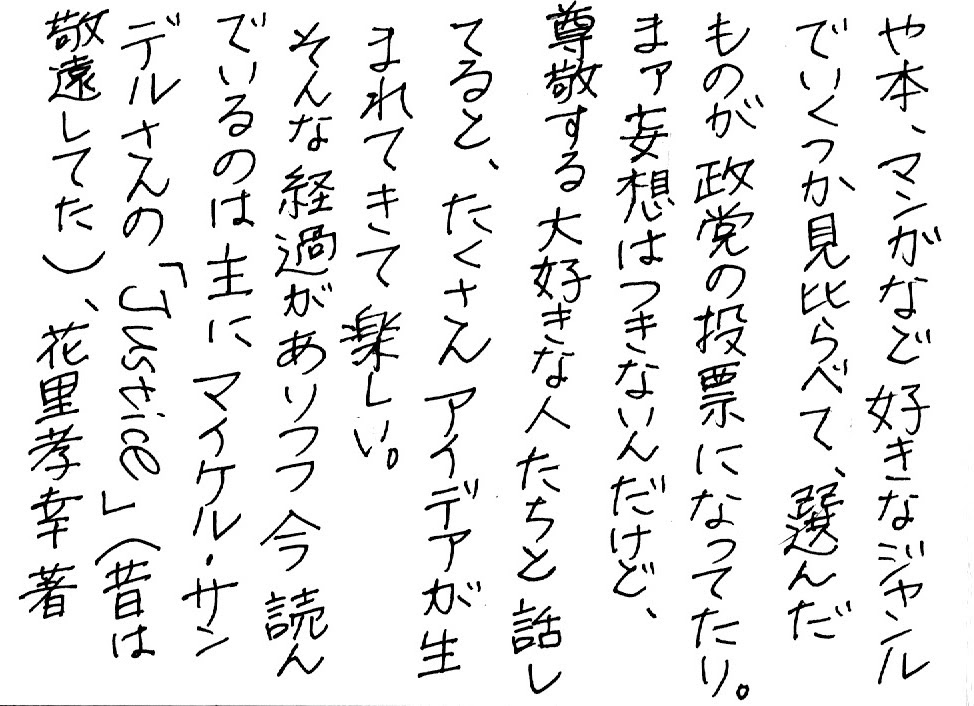 や本、マンガなど好きなジャンル
でいくつか見比らべて、選んだ
ものが政党の投票になってたり。
まァ妄想はつきないんだけど、
尊敬する大好きな人たちと話し
てると、たくさんアイデアが生
まれてきて楽しい。
そんな経過がありつつ今読ん
でいるのは主にマイケル・サン
デルさんの「Justice」（昔は
敬遠してた）、花里孝幸著